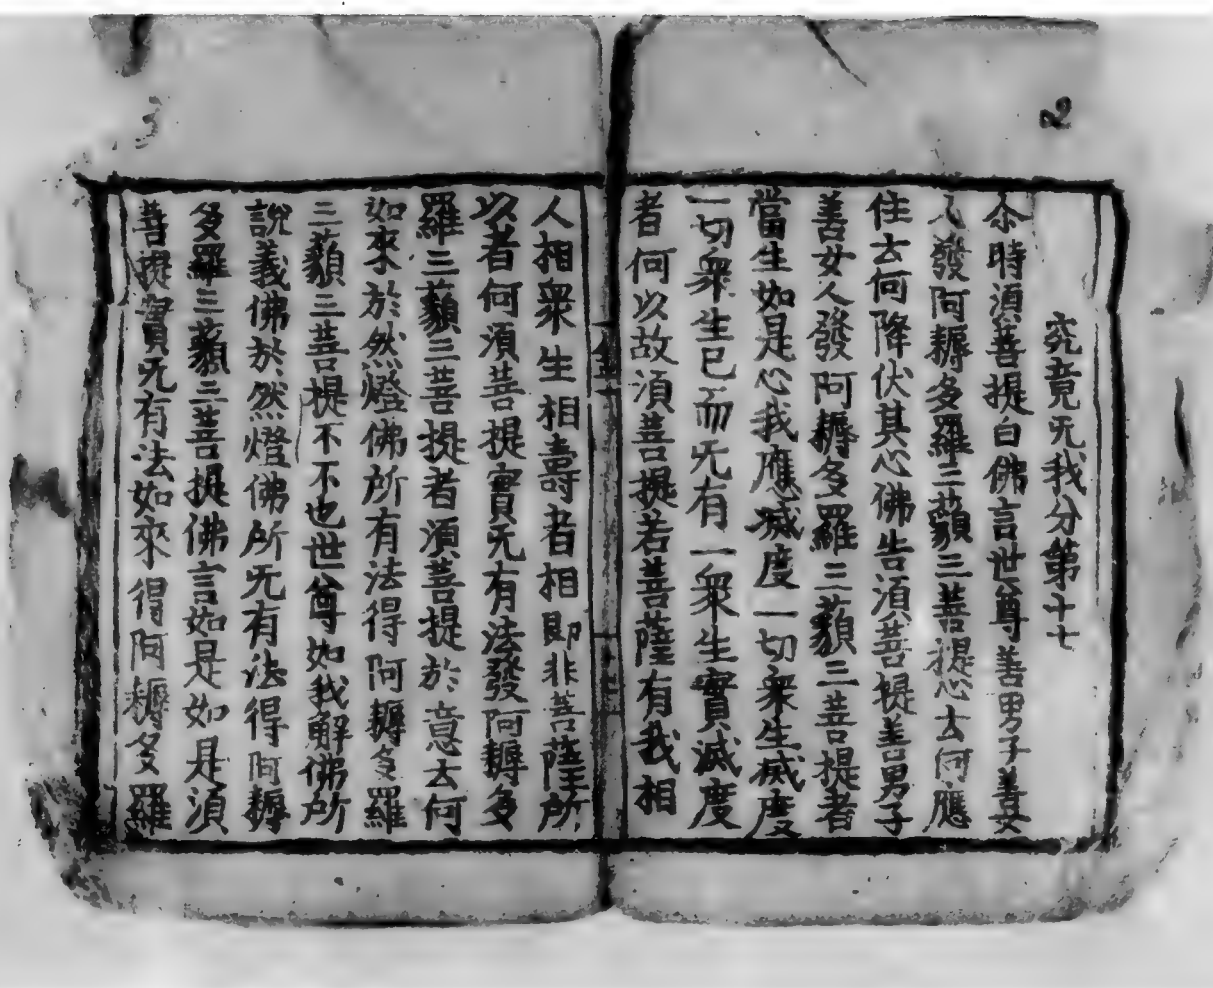 2
究竟无我分第十七
尒時湏菩提白佛言世尊善男子善女
人發阿耨多羅三藐三菩提心云何應
住云何降伏其心佛告湏菩提善男子
善女人發阿耨多羅三藐三菩提者
當生如是心我應滅度一切衆生滅度
一切衆生已而无有一衆生實滅度
者何以故湏菩提若菩薩有我相
金
3
人相衆生相壽者相即非菩薩所
以者何湏菩提實无有法發阿耨多
羅三藐三菩提者湏菩提於意云何
如來於然燈佛所有法得阿耨多羅
三藐三菩提不不也世尊如我解佛所
說義佛於然燈佛所无有法得阿耨
多羅三藐三菩提佛言如是如是湏
菩提實无有法如來得阿耨多羅